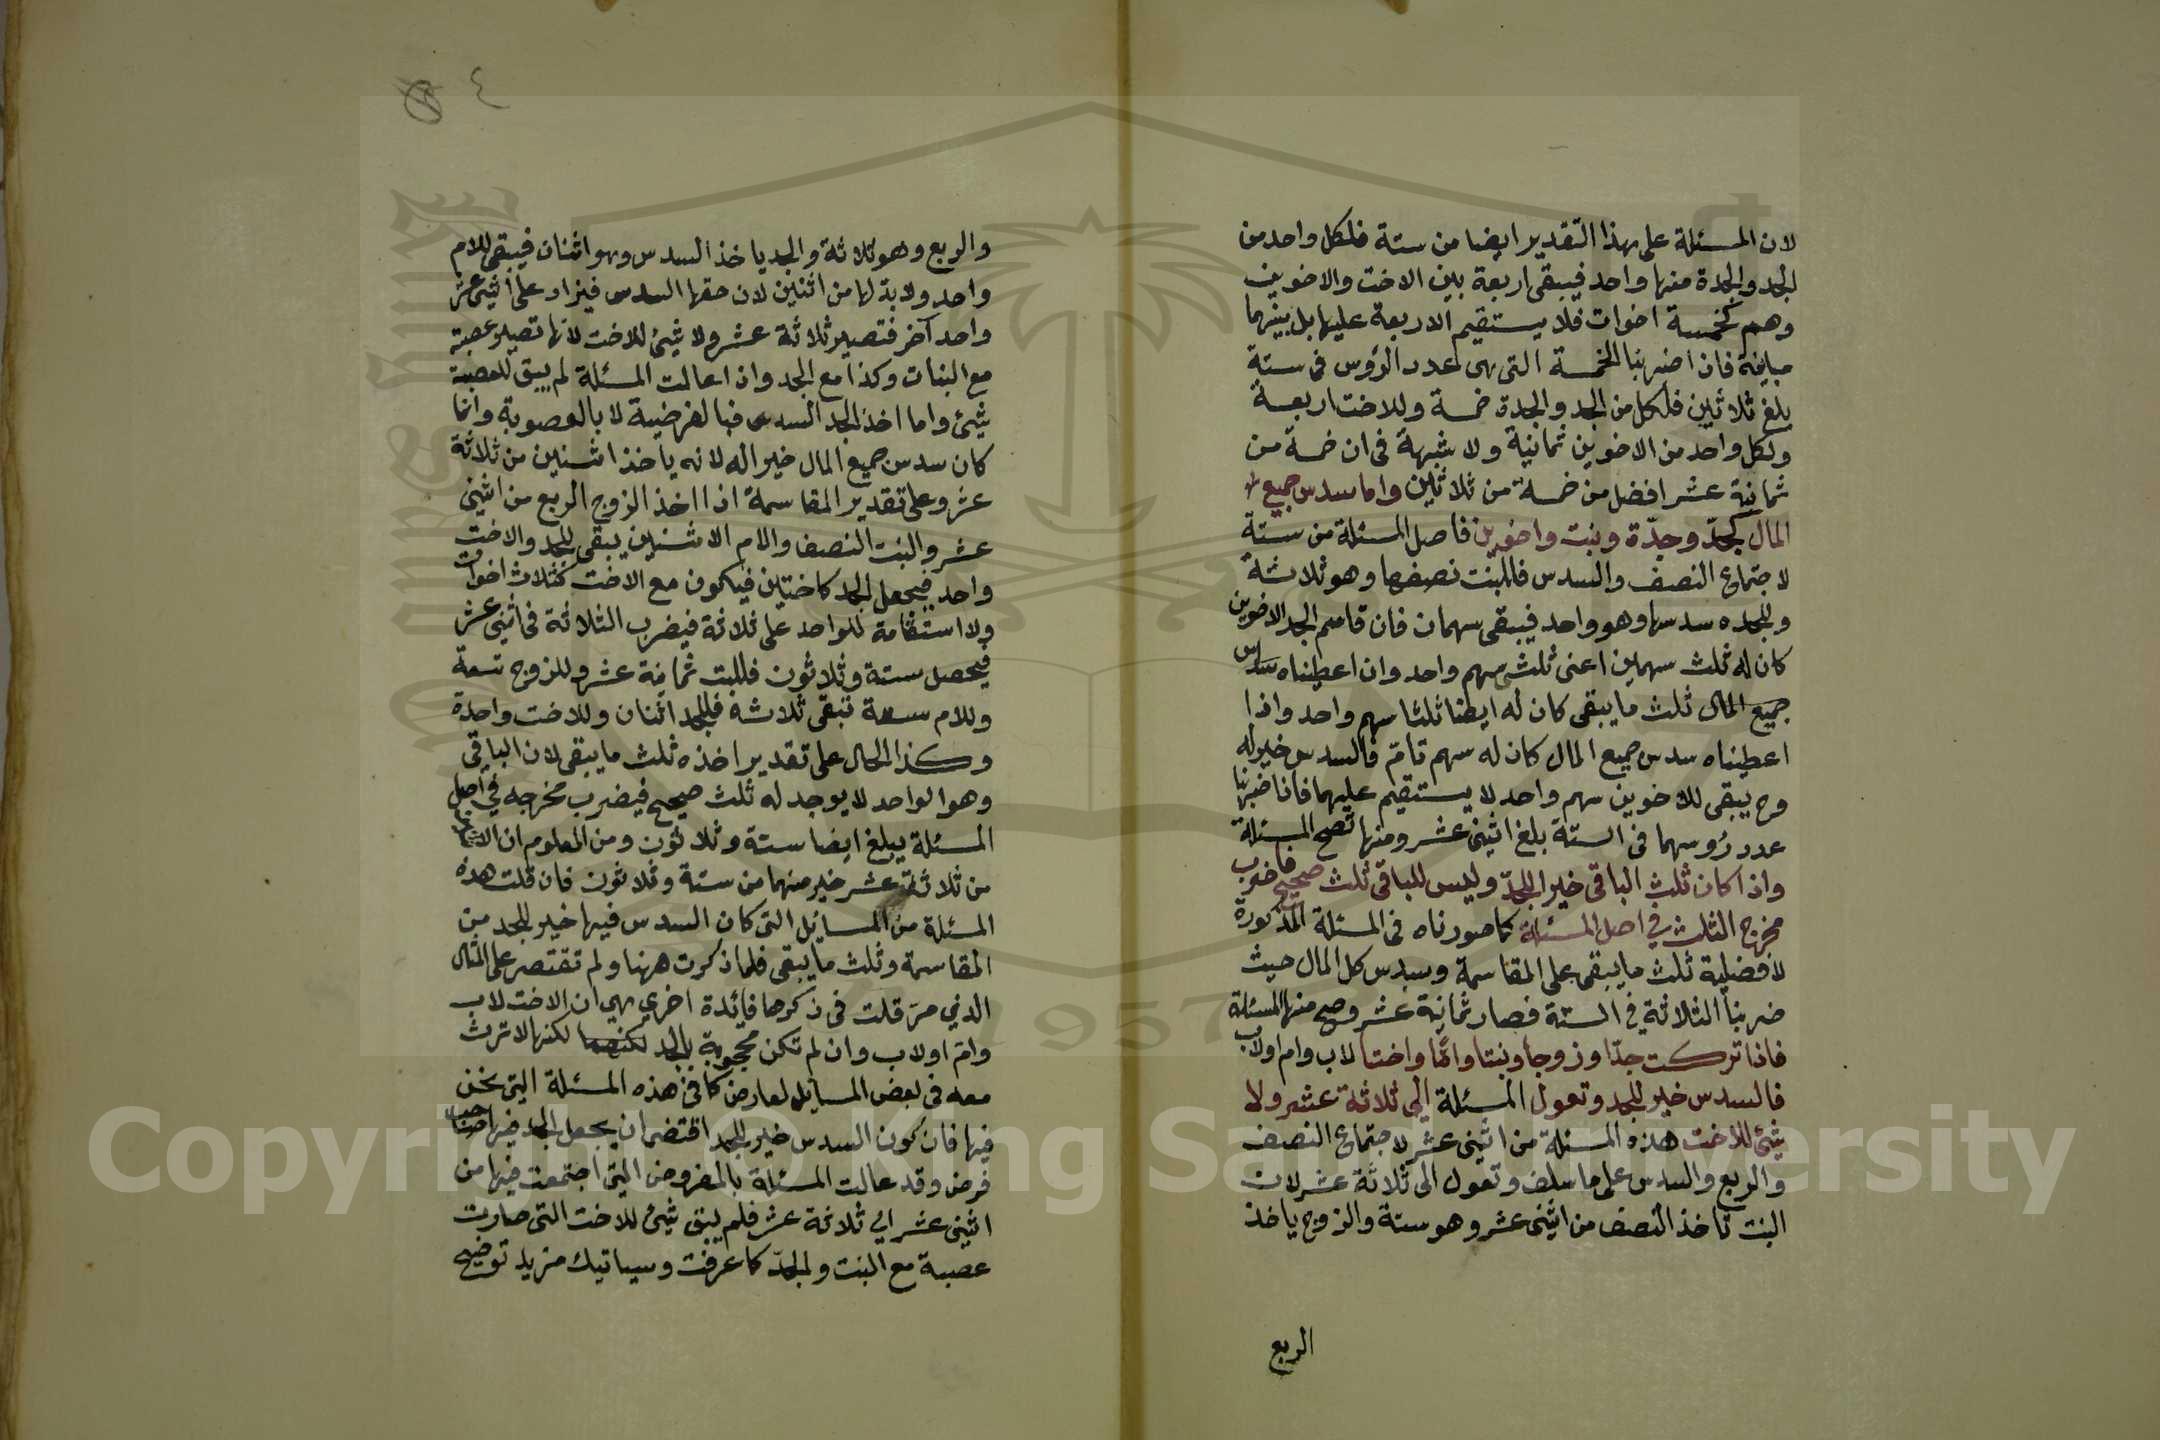 لان المسئلة على هذا التقدير ايضا من ستة فلكل واحد من
الجد والجدة منها واحد فيبقى اربعة بين الاخت والاخوين
وهم كخمسة اخوات فلا يستقيم الاربعة عليها بل بينهما
مباينة فان اضربنا الخمسة التى هى عدد الرؤس فى ستة
يلغ ثلاثين فلكل من الجد والجدة خمسة وللاخت اربعة
ولكل واحد من الاخوين ثمانية ولا شبهة فى ان خمسة من
ثمانية عشر افضل من خمسة من ثلاثين واما سدس جميع
المال كجدّ وجدّة وبنت واخوين فاصل المسئلة من ستة
لاجتماع النصف والسدس فللبنت نصفها وهو ثلاثة
وللجده سدسها وهو واحد فيبقى سهمان فان قاسم الجد الاخوين
كان له ثلث سهمين اعنى ثلثى سهم واحد وان اعطيناه سدس
جميع المال ثلث ما يبقى كان له ايضا ثلثا سهم واحد واذا
اعطيناه سدس جميع المال كان له سهم تامّ فالسدس خير له
وح يبقى للاخوين سهم واحد لا يستقيم عليهما فاذا ضربنا
عدد رؤسهما فى الستة بلغ اثنى عشر ومنها تصح المسئلة
واذا كان ثلث الباقى خيرا للجدّ وليس للباقى ثلث صحيح فاضرب
مخرج الثلث فى اصل المسئلة كما صورناه فى المسئلة المذكورة
لافضلية ثلث ما يبقى على المقاسمة وسدس كل المال حيث
ضربنا الثلاثة فى الستة فصار ثمانية عشر وصح منها المسئلة
فاذا تركت جدّا وزوجا وبنتا وامّا واختا لاب وام اولاب
فالسدس خير للجد وتعول المسئلة الى ثلاثة عشر ولا
شئ للاخت هذه المسئلة من اثنى عشر لاجتماع النصف
والربع والسدس على ما سلف وتعول الى ثلاثة عشر لان
البنت تاخذ النصف من اثنى عشر وهو ستة والزوج ياخذ
الربع
٤
والربع وهو ثلاثة والجد ياخذ السدس وهو اثنان فيبقى للام
واحد ولا بد لها من اثنين لان حقها السدس فيزاد على اثنى عشر
واحد آخر فتصير ثلاثة عشر ولا شئ للاخت لانها تصير عصبة
مع البنات وكذا مع الجد واذا عالت المسئلة لم يبق للعصبة
شئ واما اخذ الجد السدس فبالفرضية لا بالعصوبة وانما
كان سدس جميع المال خيرا له لانه ياخذ اثنين من ثلاثة
عشر وعلى تقدير المقاسمة اذا اخذ الزوج الربع من اثنى
عشر والبنت النصف والام الاثنين يبقى للجد والاخت
واحد فيجعل الجد كاختين فيكون مع الاخت كثلاث اخوات
ولا استقامة للواحد على ثلاثة فيضرب الثلاثة فى اثنى عشر
فيحصل ستة وثلاثون فللبنت ثمانية عشر وللزوج تسعة
وللام ستة تبقى ثلاثة فللجد اثنان وللاخت واحدة
وكذا الحال على تقدير اخذه ثلث ما يبقى لان الباقى
وهو الواحد لا يوجد له ثلث صحيح فيضرب مخرجه فى اصل
المسئلة يبلغ ايضا ستة وثلاثون ومن المعلوم ان الاثنين
من ثلاثة عشر خير منهما من ستة وثلاثون فان قلت هذه
المسئلة من المسايل التى كان السدس فيها خير للجد من
المقاسمة وثلث ما يبقى فلما ذكرت ههنا ولم تقتصر على المثال
الذي مر قلت فى ذكرها فائدة اخرى هى ان الاخت لاب
وام اولاب وان لم تكن محجوبة بالجد لكنها لا ترث
معه فى بعض المسايل لعارض كما فى هذه المسئلة التى نحن
فيها فان كون السدس خير للجد اقتضى ان يجعل الجد فيها صاحب
فرض وقد عالت المسئلة بالمفروض التى اجتمعت فيها من
اثنى عشر الى ثلاثة عشر فلم يبق شئ للاخت التى صارت
عصبة مع البنت والجدّ كما عرفت وسياتيك مزيد توضيح
Copyright © King Saud University
1957